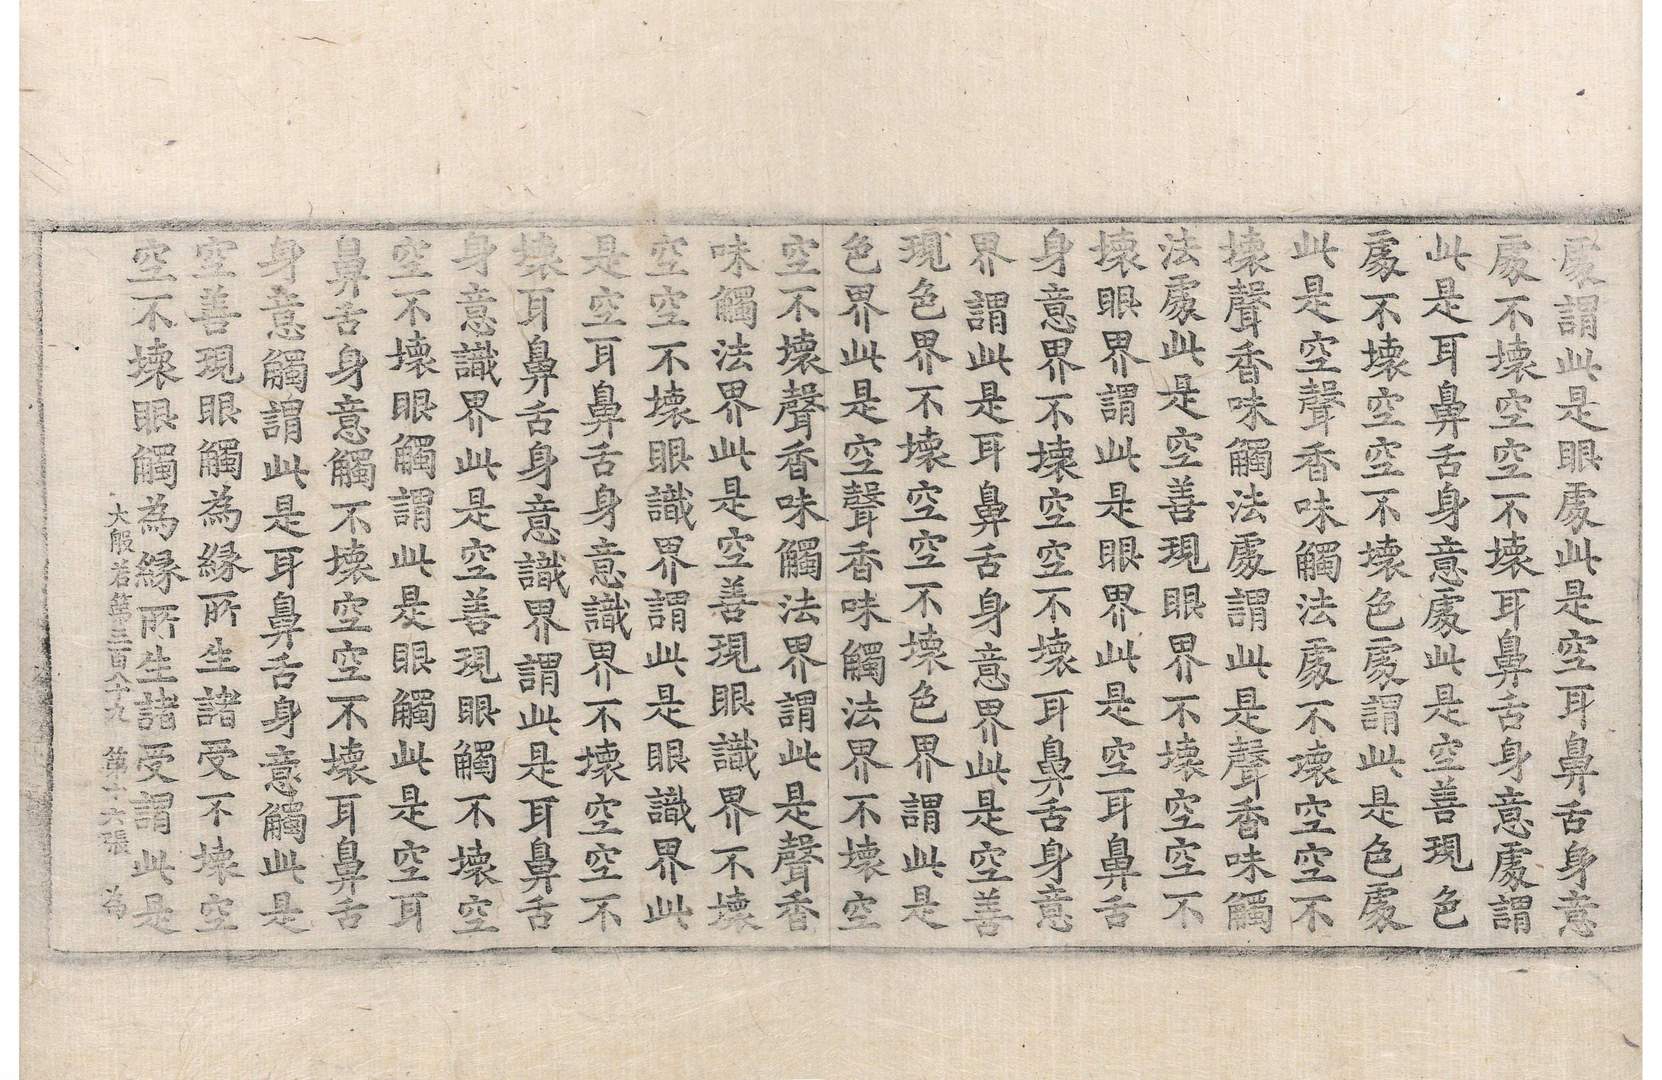 處謂此是眼處此是空耳鼻舌身意
處不壞空空不壞耳鼻舌身意處謂
此是耳鼻舌身意處此是空善現色
處不壞空空不壞色處謂此是色處
此是空聲香味觸法處不壞空空不
壞聲香味觸法處謂此是聲香味觸
法處此是空善現眼界不壞空空不
壞眼界謂此是眼界此是空耳鼻舌
身意界不壞空空不壞耳鼻舌身意
界謂此是耳鼻舌身意界此是空善
現色界不壞空空不壞色界謂此是
色界此是空聲香味觸法界不壞空
空不壞聲香味觸法界謂此是聲香
味觸法界此是空善現眼識界不壞
空空不壞眼識界謂此是眼識界此
是空耳鼻舌身意識界不壞空空不
壞耳鼻舌身意識界謂此是耳鼻舌
身意識界此是空善現眼觸不壞空
空不壞眼觸謂此是眼觸此是空耳
鼻舌身意觸不壞空空不壞耳鼻舌
身意觸謂此是耳鼻舌身意觸此是
空善現眼觸為縁所生諸受不壞空
空不壞眼觸為縁所生諸受謂此是
大般若第三百八十九 第十六張 為